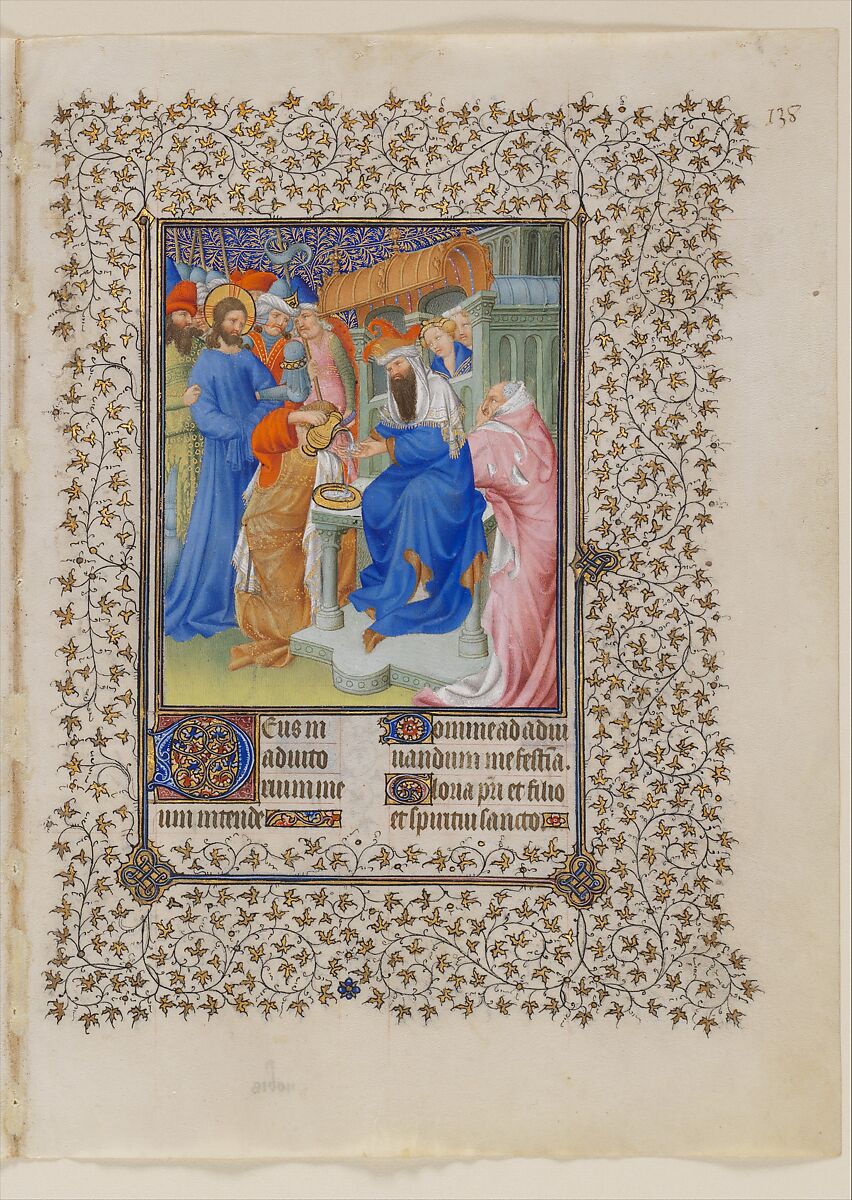 138
Deus in
adiuto
rium me
um intende
Domine ad adiu
uandum me festīa.
Gloria pr̄i et filio
et spiritui sancto